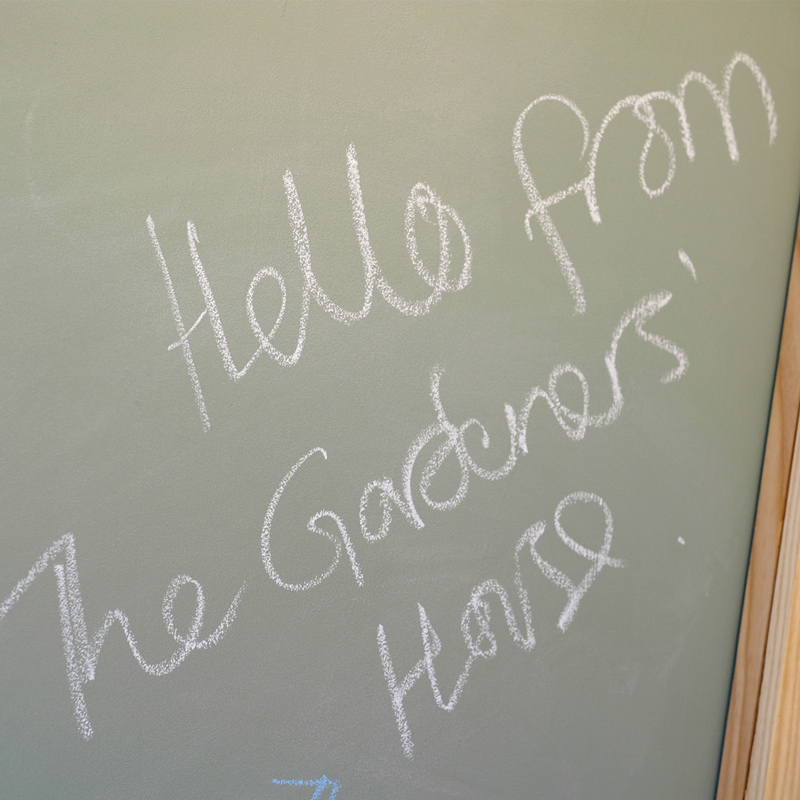 Hello from
The Gardeners'
House